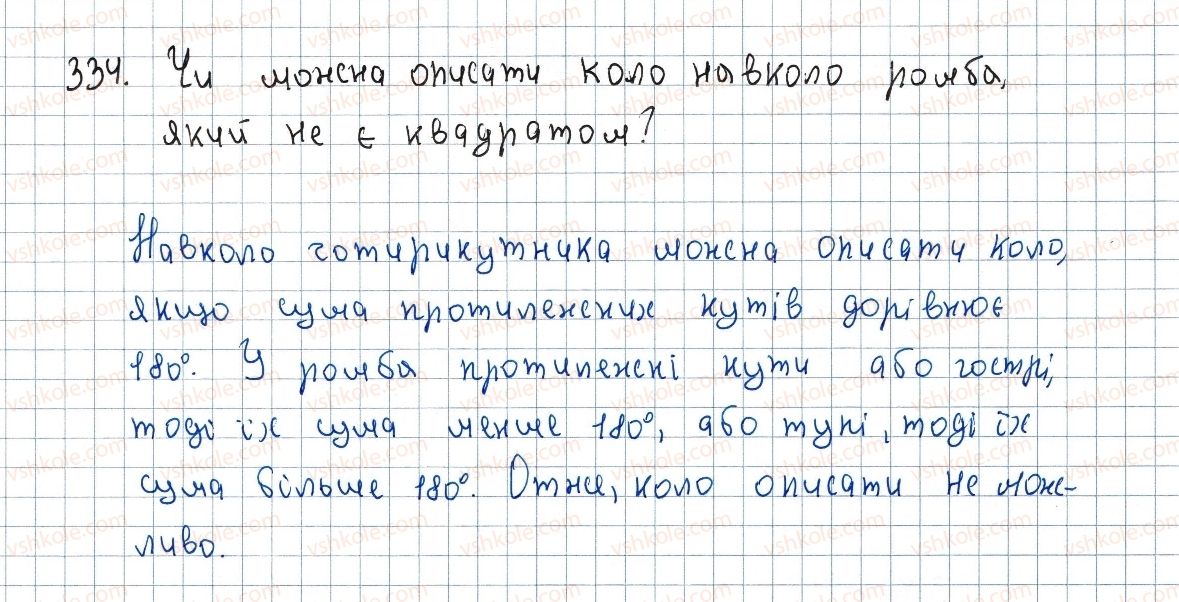 334. Чи можна описати коло навколо ромба,
який не є квадратом?
Навколо чотирикутника можна описати коло,
якщо сума протилежних кутів дорівнює
180°. У ромба протилежні кути або гострі,
тоді їх сума менше 180°, або тупі, тоді їх
сума більше 180°. Отже, коло описати не мож-
ливо.